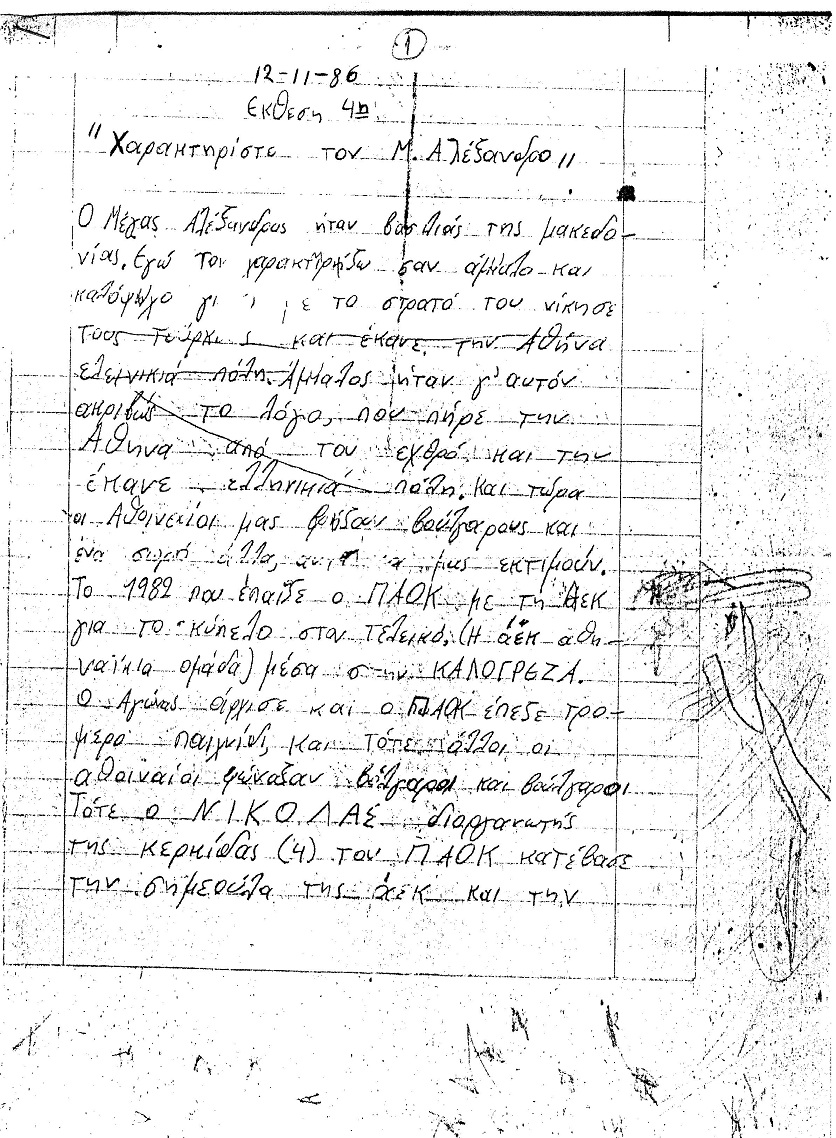 1
12-11-86
Εκθεση 4η
"Χαρακτηρίστε τον Μ. Αλέξανδρο"
Ο Μέγας Αλέξανδρος ήταν βασιλιάς της μακεδο-
νίας. Εγώ τον χαρακτηρίζω σαν άμαλο και
καλόψυχο με το στρατό του νίκησε
τους τούρκους και έκανε την Αθήνα
ελεινικιά πόλη. Άμαλος ήταν γι' αυτόν
ακριβώς το λόγο, που πήρε την
Αθηνα από τον εχθρό και την
έκανε ελληνικιά πόλη. Και τώρα
οι Αθοινεχίοι μας βρίζουν βούλγαρους και
ένα σωρό άλλα, μας εκτιμούν.
Το 1982 που έπαιξε ο ΠΑΟΚ με τη ΑΕΚ
για το κύπελο στον τελεικό. (Η άεκ αθη-
ναϊκια ομάδα) μέσα στην ΚΑΛΟΓΡΕΖΑ.
Ο Αγώνας άρχισε και ο ΠΑΟΚ έπεζε τρο-
μερό παιχνίδι, και τότε άλλοι οι
αθοιναίοι φώναξαν βούλγαροι και βούλγαροι
Τότε ο ΝΙΚΟΛΑΣ διοργανωτής
της κερκίδας (4) του ΠΑΟΚ κατέβασε
την σημεούλα της άεκ και την